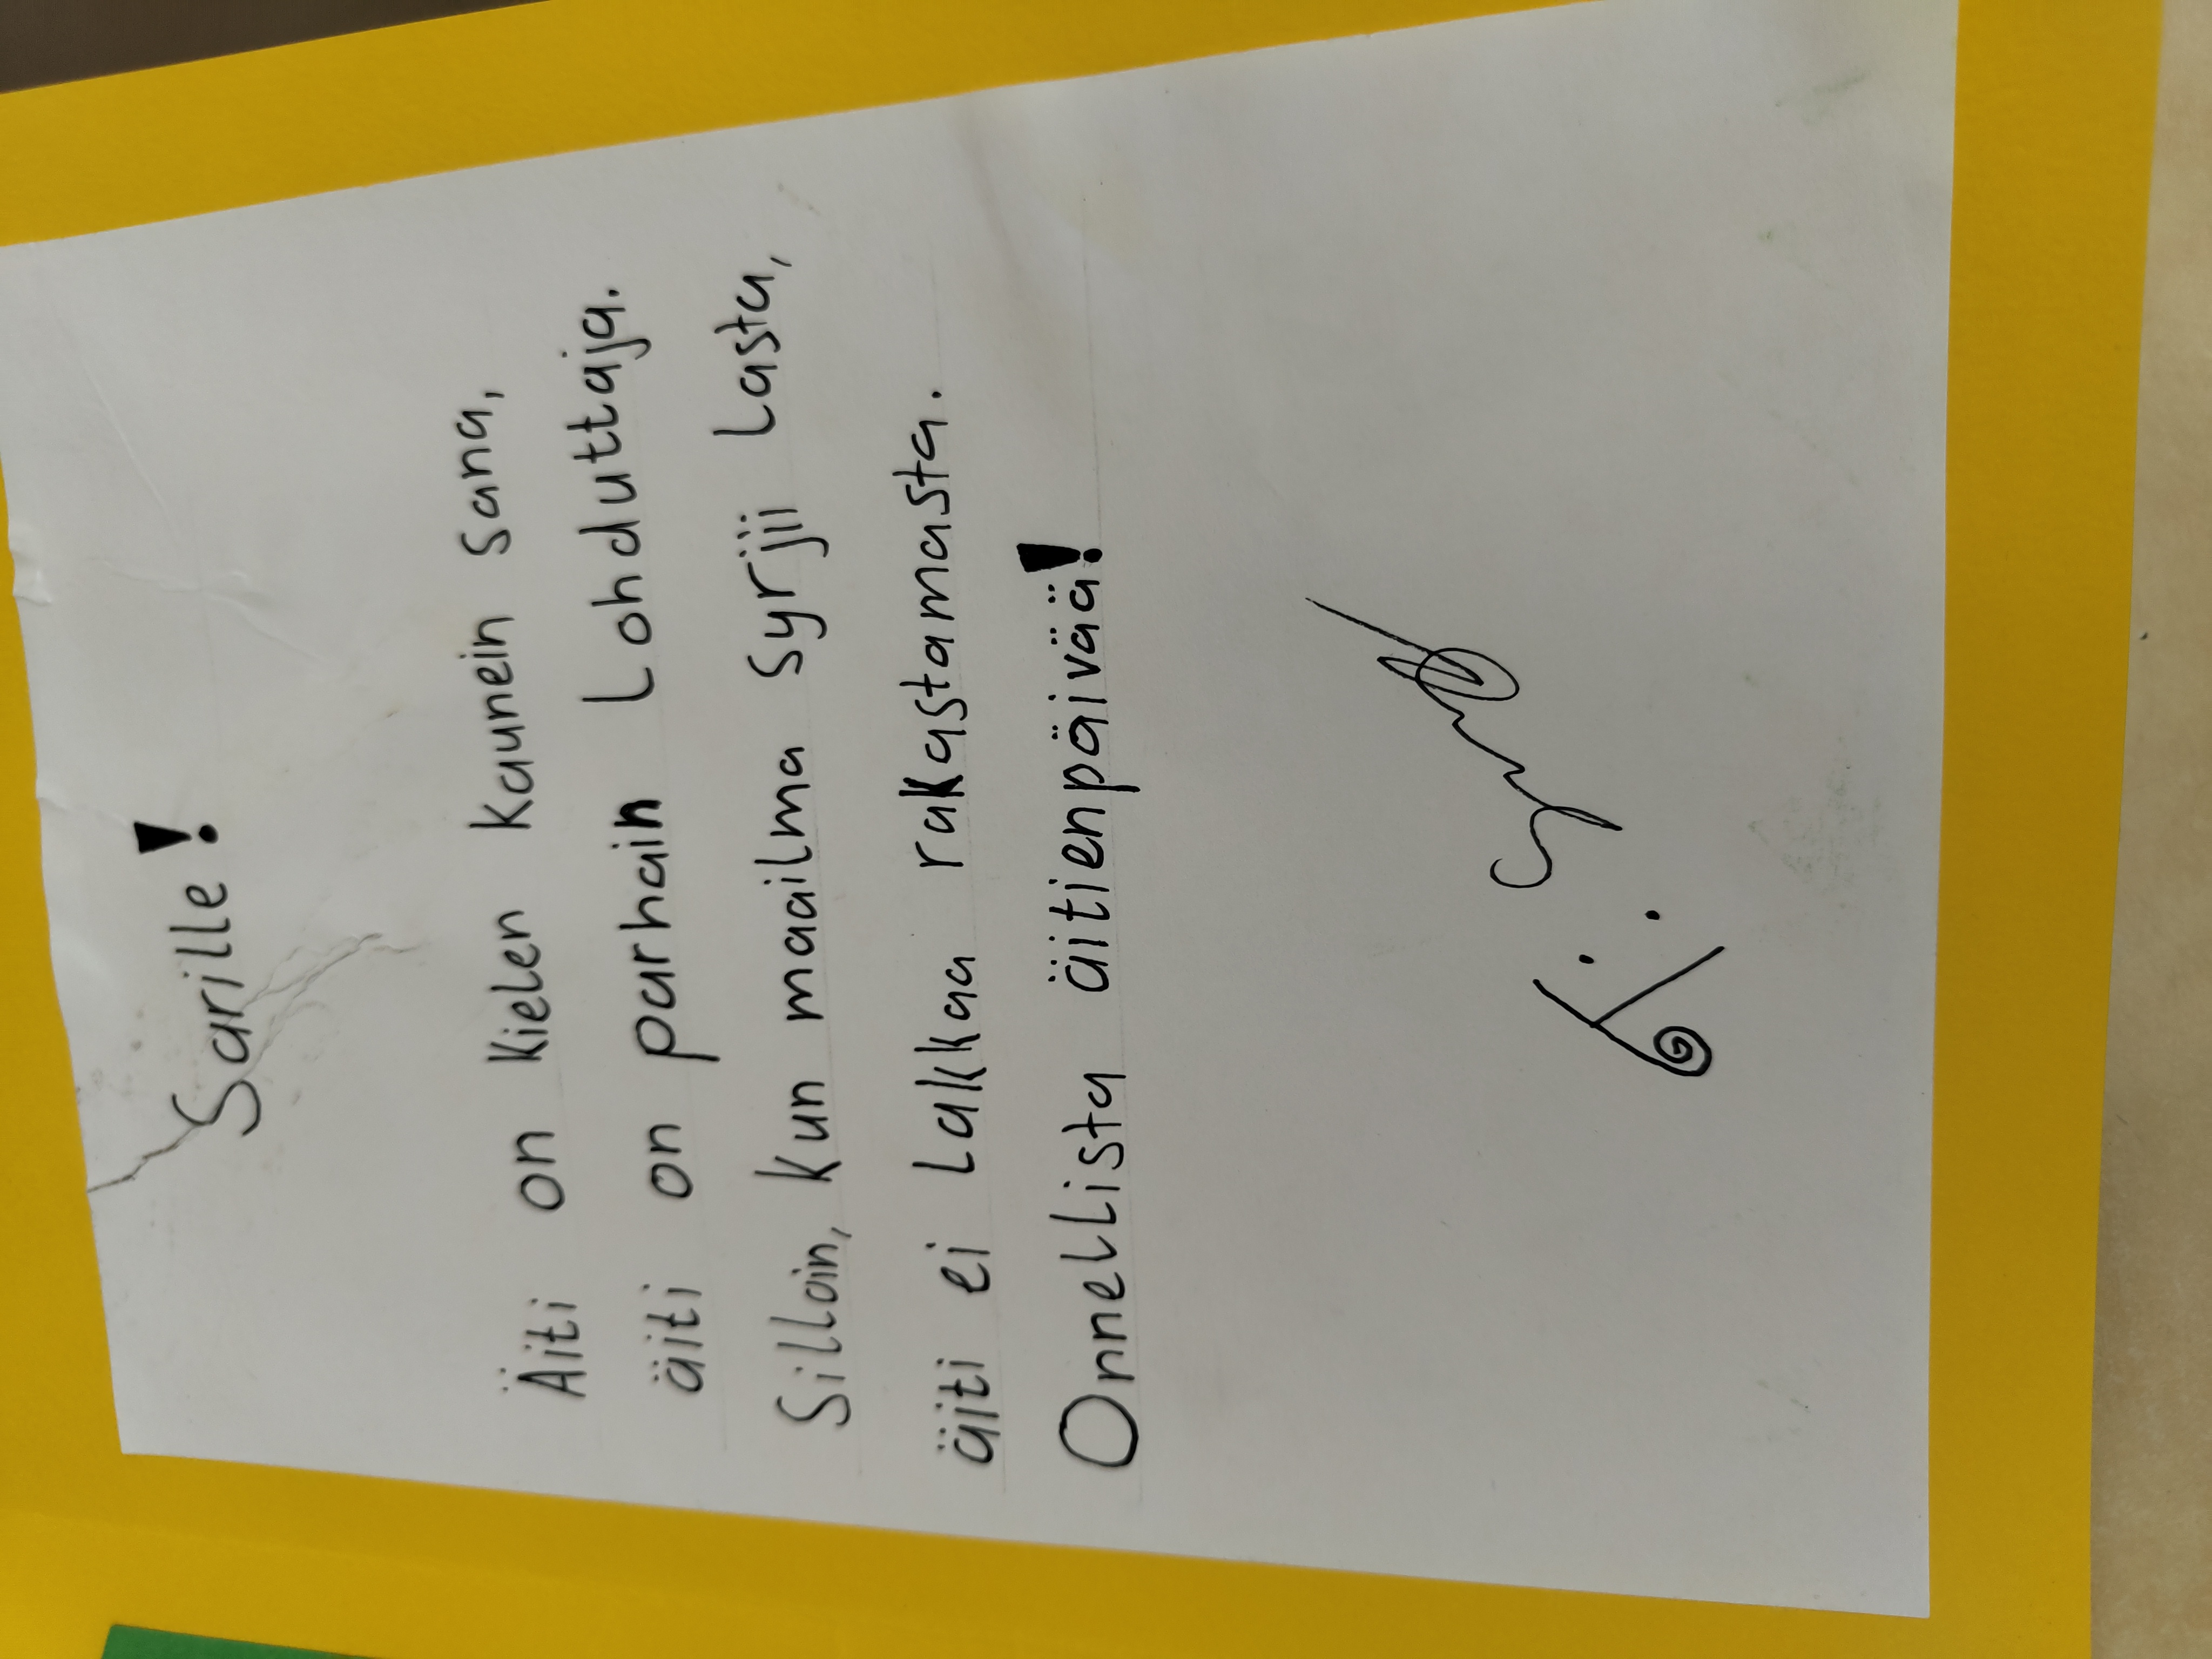 Sarille!
Äiti on kielen kaunein sana,
äiti on parhain Lohduttaja.
Silloin, kun maailma syrjii Lasta,
äiti ei Lakkaa rakastamasta.
Onnellista äitienpäivää!